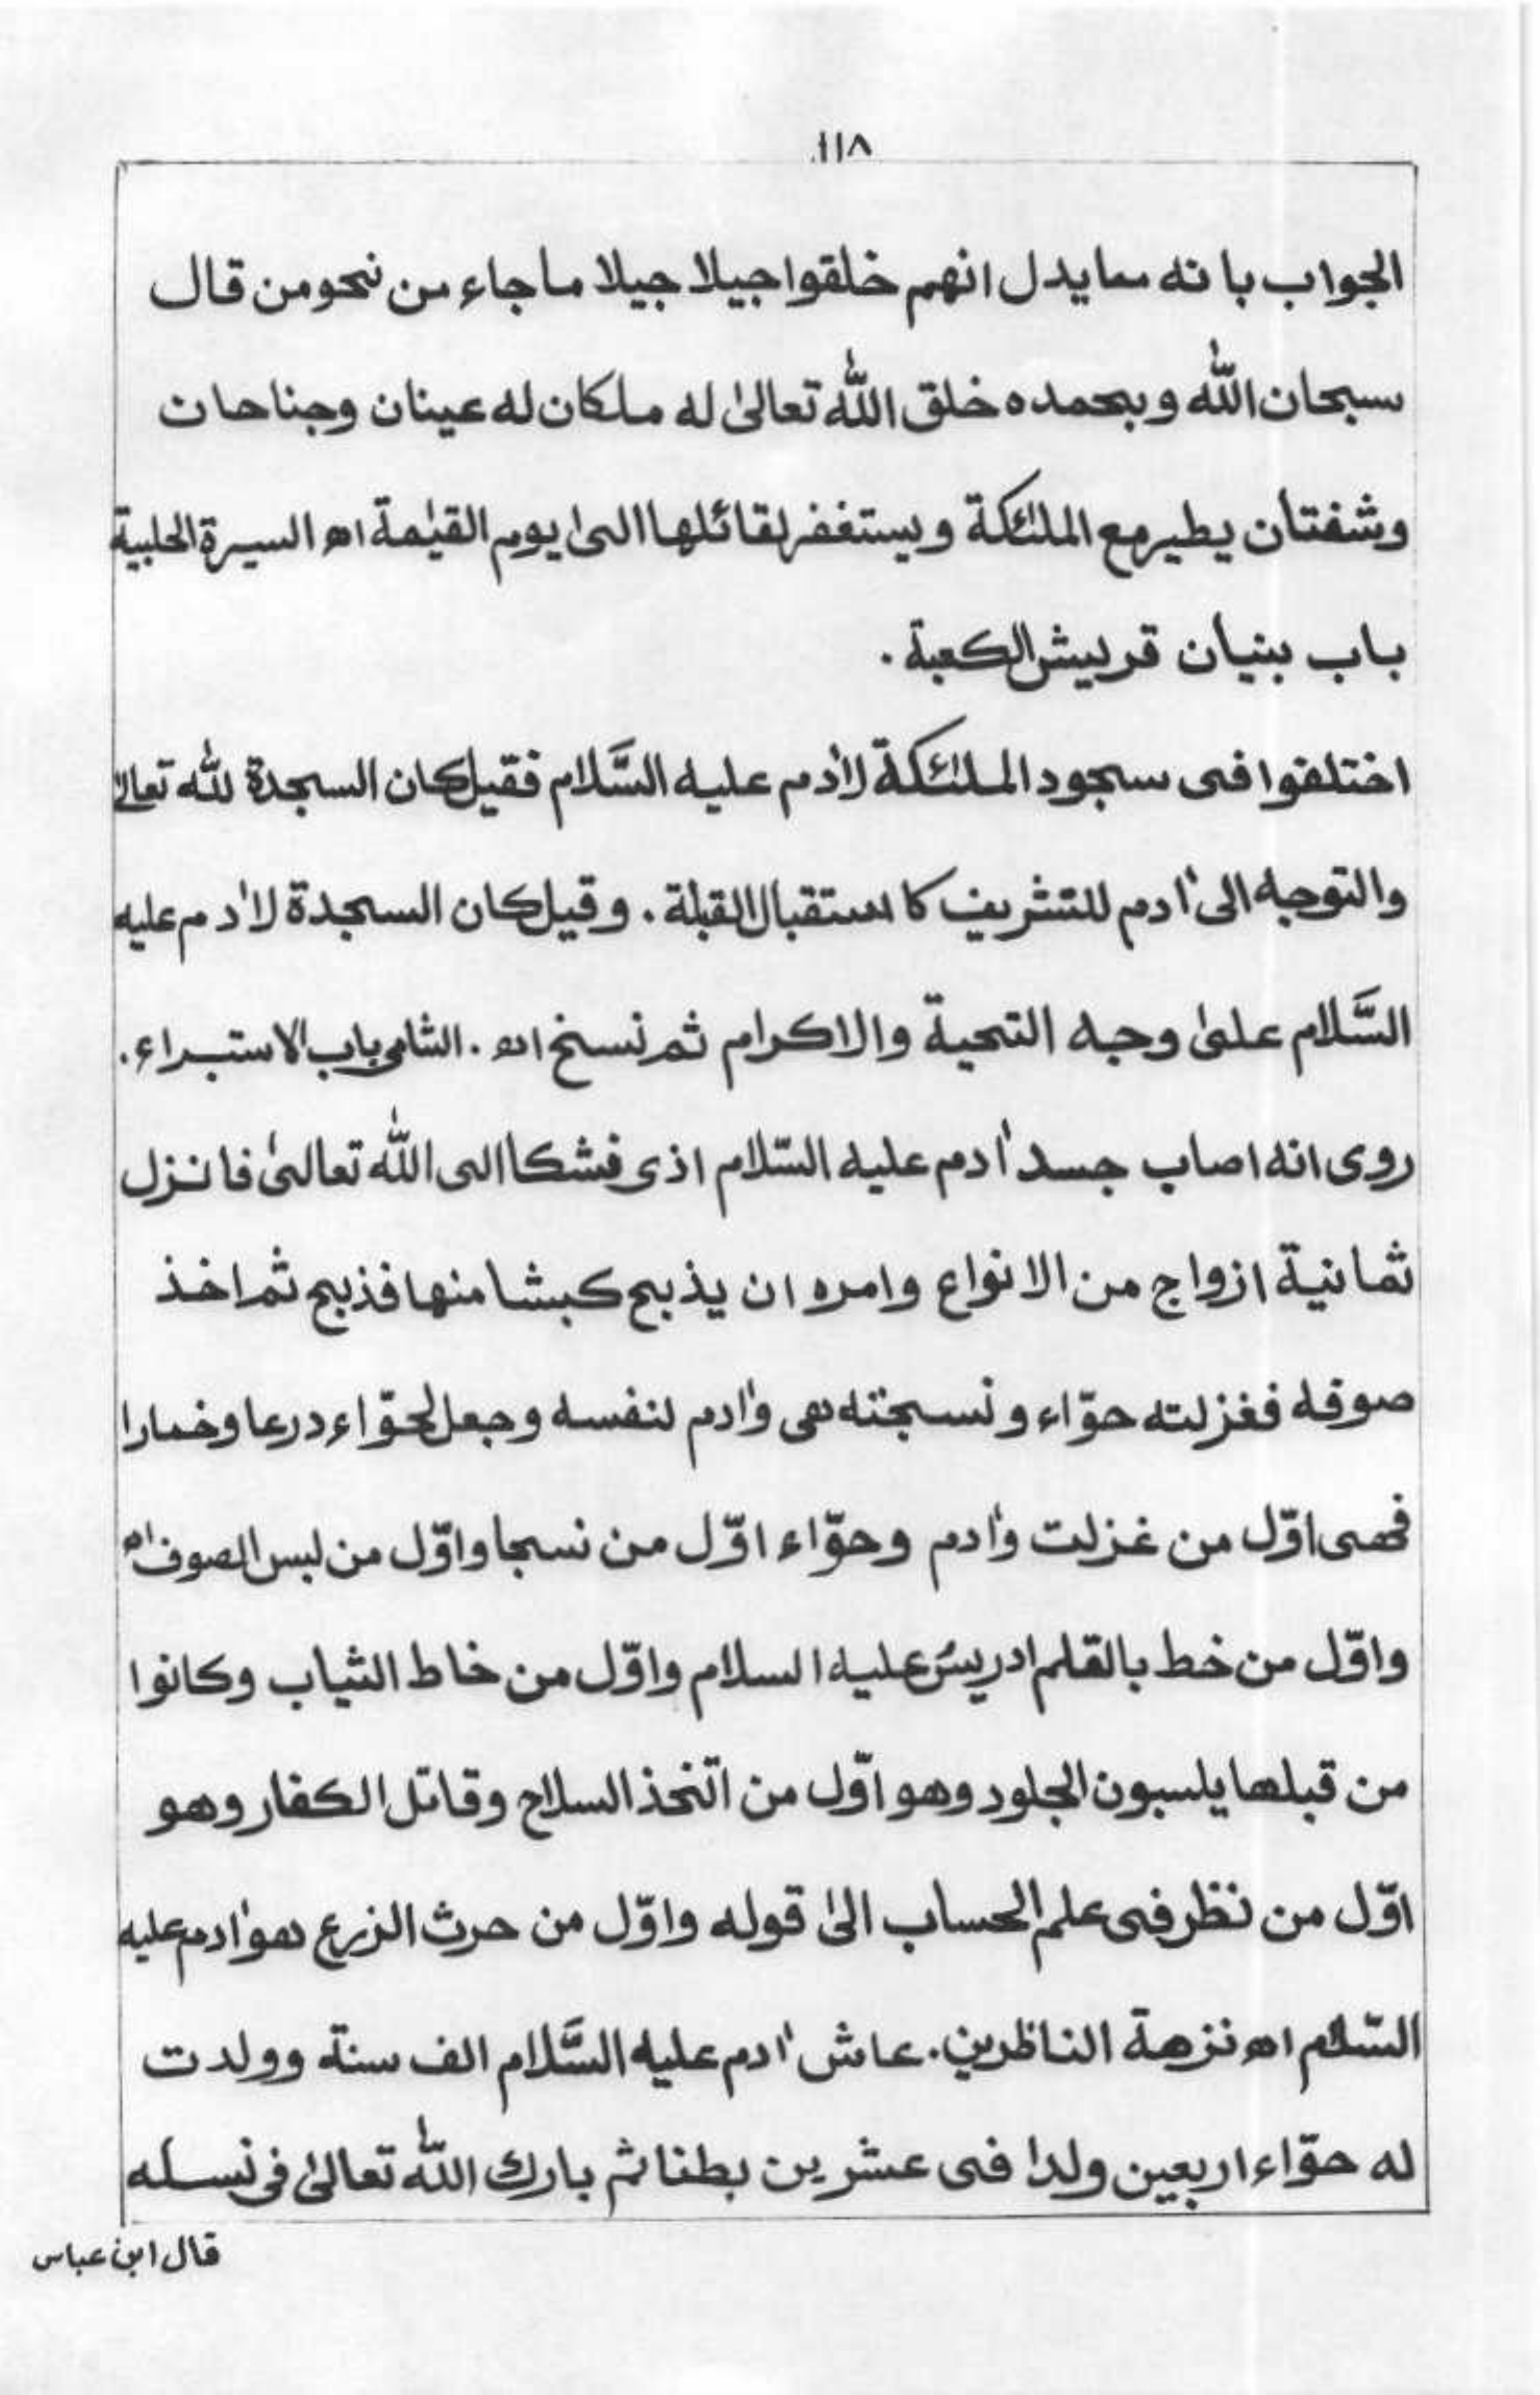 ١١٨
الجواب بانه مما يدل انهم خلقوا جيلا جيلا ما جاء من نحو من قال
سبحان الله وبحمده خلق الله تعالىٰ له ملكان له عينان وجناحان
وشفتان يطير مع الملٰئكة ويستغفر لقائلها الىٰ يوم القيٰمة اھ السيرة الحلبية
باب بنيان قريش الكعبة .
اختلفوا فى سجود الملٰئكة لاٰدم عليه السَّلام فقيل كان السجدة للّٰه تعالىٰ
والتوجه الى اٰدم للتشريف كاستقبال القبلة . وقيل كان السجدة لاٰدم عليه
السَّلام علىٰ وجه التحية والاكرام ثم نسخ اھ . الشامى باب الاستبراء .
روى انه اصاب جسد اٰدم عليه السّلام اذى فشكا الى اللّٰه تعالىٰ فانزل
ثمانية ازواج من الانواع وامره ان يذبح كبشا منها فذبح ثم اخذ
صوفه فغزلته حوّاء ونسجته هى واٰدم لنفسه وجعل لحوّاء درعا وخمارا
فهى اوّل من غزلت واٰدم وحوّاء اوّل من نسجا واوّل من لبس الصوف اھ
واوّل من خط بالقلم ادريس عليه السلام واوّل من خاط الثياب وكانوا
من قبلها يلسبون الجلود وهو اوّل من اتّخذ السلاح وقاتل الكفار وهو
اوّل من نظر فى علم الحساب الىٰ قوله واوّل من حرث الزرع هو اٰدم عليه
السّلام اھ نزهة الناظرين. عاش اٰدم عليه السَّلام الف سنة وولدت
له حوّاء اربعين ولدا فى عشرين بطنا ثم بارك اللّٰه تعالىٰ فى نسله
قال ابن عباس